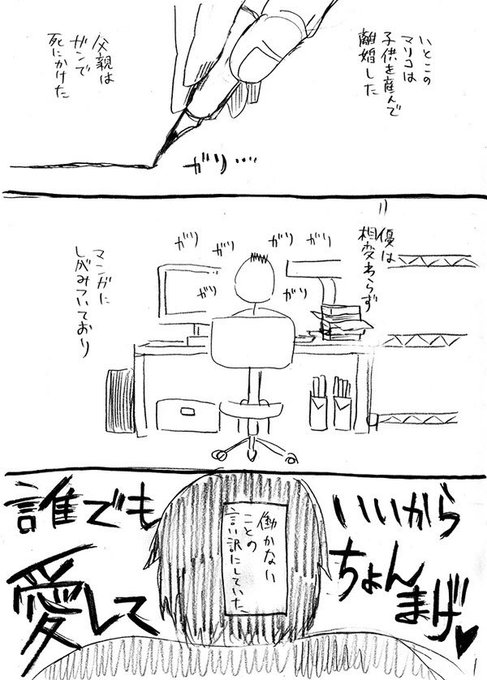 いとこの
マリコは
子供を産んで
離婚した
父親は
ガンで
死にかけた
ガリ…
優は
相変わらず
ガリ
ガリ
ガリ
ガリ
ガリ
マンガに
しがみついており
働かない
ことの
言い訳にしていた
誰でも
いいから
愛して
ちょん
まげ♥